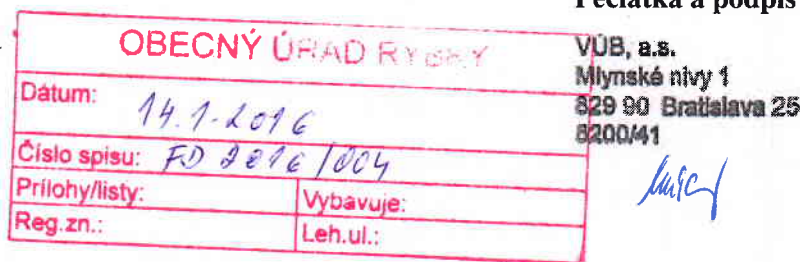 Pečiatka a podpis
OBECNÝ ÚRAD
Dátum: 14.1.2016
Číslo spisu: FD 2016/004
Prílohy/listy: Vybavuje:
Reg.zn.: Leh.ul.:
VÚB, a.s.
Mlynské nivy 1
829 90 Bratislava 25
8200/41